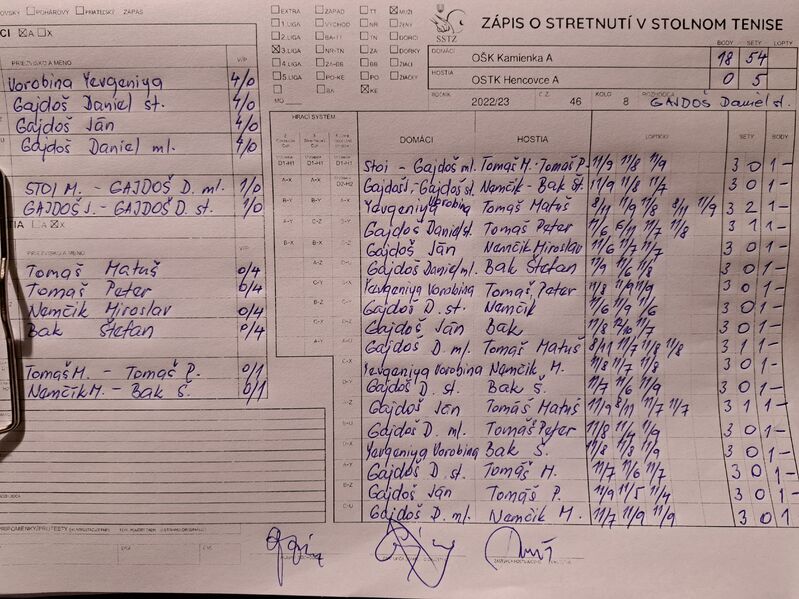 POHÁROVÝ PRIATEĽSKÝ ZÁPAS
EXTRA ZÁPAD TT MUŽI
1.LIGA VÝCHOD NR ŽENY
2.LIGA BA-TT TN DORCI
3.LIGA NR-TN ZA DORKY
4.LIGA ZA-BB BB ŽIACI
5.LIGA PO-KE PO ŽIAČKY
BA KE
SSTZ
ZÁPIS O STRETNUTÍ V STOLNOM TENISE
BODY SETY LOPTY
DOMÁCI OŠK Kamienka A 18 54
HOSTIA OSTK Hencovce A 0 5
ROČNÍK 2022/23 Č.Z. 46 KOLO 8 ROZHODCA GAJDOŠ Daniel st.
A X
PRIEZVISKO A MENO V/P
Vorobina Yevgeniya 4/0
Gajdoš Daniel st. 4/0
Gajdoš Ján 4/0
Gajdoš Daniel ml. 4/0
STOI M. - GAJDOŠ D. ml. 1/0
GAJDOŠ J. - GAJDOŠ D. st. 1/0
A X
PRIEZVISKO A MENO V/P
Tomaš Matuš 0/4
Tomaš Peter 0/4
Nemčik Miroslav 0/4
Bak Štefan 0/4
Tomaš M. - Tomaš P. 0/1
Nemčík M. - Bak Š. 0/1
HRACÍ SYSTÉM
DOMÁCI HOSTIA LOPTIČKY SETY BODY
Stoi - Gajdoš ml. Tomaš M. - Tomaš P. 11/9 11/8 11/9 3 0 1 -
Gajdoš J. - Gajdoš st. Nemčik - Bak Št. 11/9 11/8 11/7 3 0 1 -
Yevgeniya Vorobina Tomaš Matuš 8/11 11/9 11/8 8/11 11/9 3 2 1 -
Gajdoš Daniel st. Tomaš Peter 11/6 11/7 11/8 3 1 1 -
Gajdoš Ján Nemčik Miroslav 11/6 11/7 11/7 3 0 1 -
Gajdoš Daniel ml. Bak Štefan 11/9 11/6 11/8 3 0 1 -
Yevgeniya Vorobina Tomaš Peter 11/8 11/9 11/9 3 0 1 -
Gajdoš D. st. Nemčik 11/6 11/9 11/6 3 0 1 -
Gajdoš Ján Bak 11/8 12/10 11/7 3 0 1 -
Gajdoš D. ml. Tomaš Matuš 8/11 11/7 11/8 11/8 3 1 1 -
Yevgeniya Vorobina Nemčik M. 11/8 11/7 11/8 3 0 1 -
Gajdoš D. st. Bak Š. 11/7 11/6 11/9 3 0 1 -
Gajdoš Ján Tomáš Matuš 11/9 8/11 11/7 11/7 3 1 1 -
Gajdoš D. ml. Tomaš Peter 11/8 11/9 3 0 1 -
Yevgeniya Vorobina Bak Š. 11/8 11/9 3 0 1 -
Gajdoš D. st. Tomaš M. 11/7 11/6 11/7 3 0 1 -
Gajdoš Ján Tomaš P. 11/9 11/5 11/4 3 0 1 -
Gajdoš D. ml. Nemčik M. 11/7 11/9 11/9 3 0 1